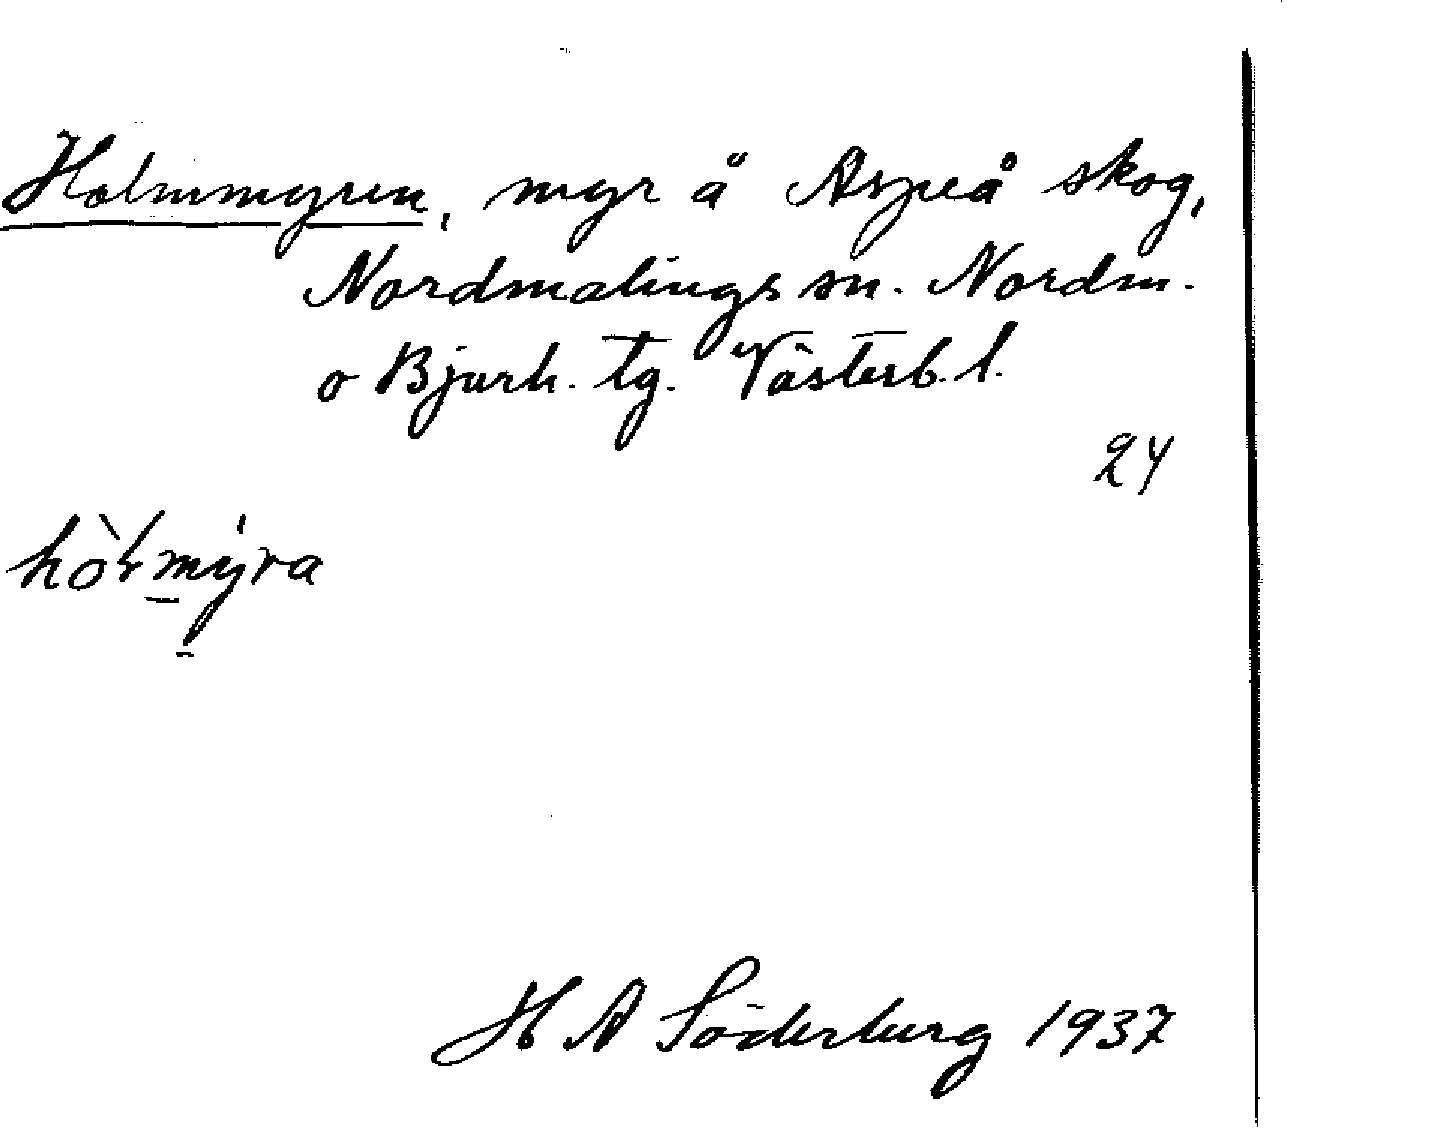 Holmmyren, myr å Aspeå skog,
Nordmalings sn. Nordm.
o Bjurh. tg. Västerb. l.
24
H A Söderberg 1937